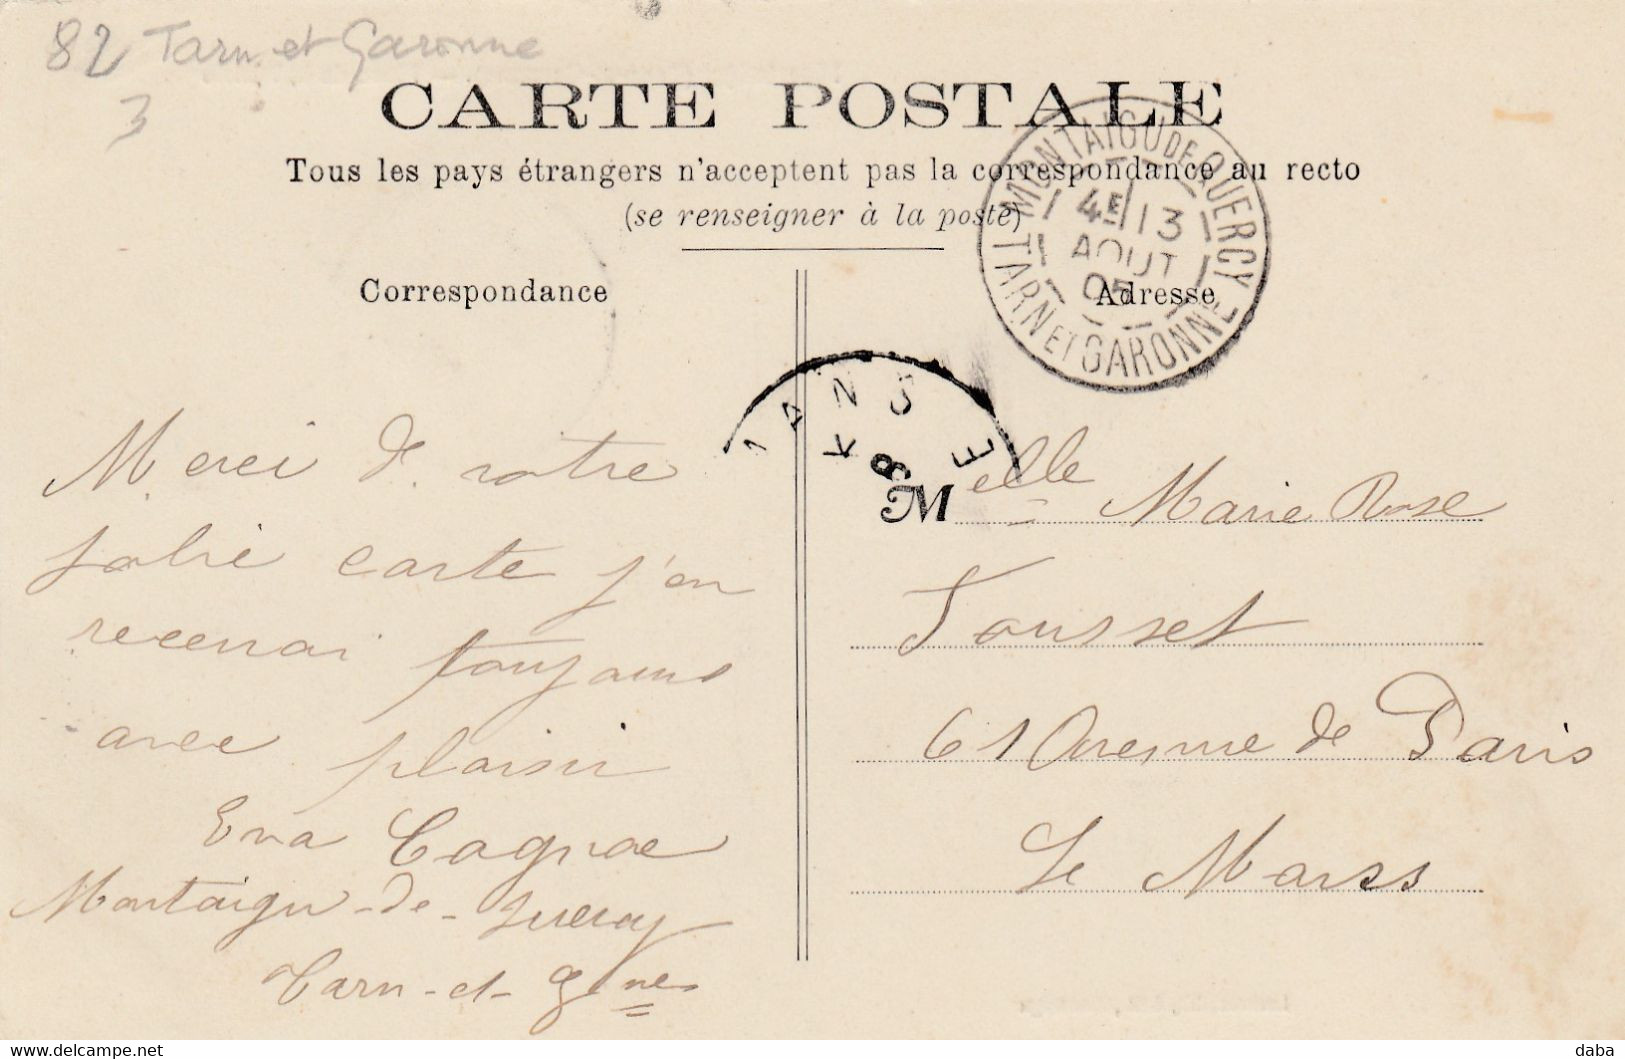 82 Tarn et Garonne
3
CARTE POSTALE
Tous les pays étrangers n'acceptent pas la correspondance au recto
(se renseigner à la poste)
MONTAIGU DE QUERCY
4E 13
AOUT
05
TARN ET GARONNE
Correspondance
Merci de votre
jolie carte j'en
recevrai toujours
avec plaisir
Eva Cagnac
Montaigu-de-Quercy
Tarn-et-Gnne
Adresse
Melle Marie Rose
Tousset
61 Avenue de Paris
Le Mans
delcampe.net
daba